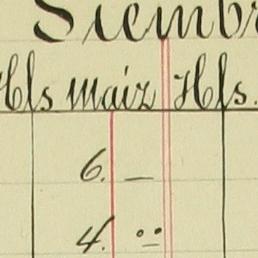 Siembr
Hfs maiz Hfs.
6. —
4. "